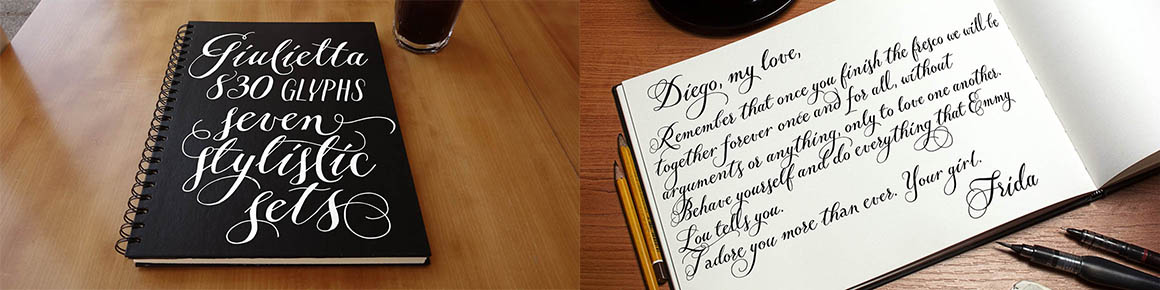 Giulietta
830 GLYPHS
seven
stylistic
sets
Diego, my love,
Remember that once you finish the fresco we will be
together forever once and for all, without
arguments or anything, only to love one another.
Behave yourself and do everything that Emmy
Lou tells you.
I adore you more than ever. Your girl.
Frida